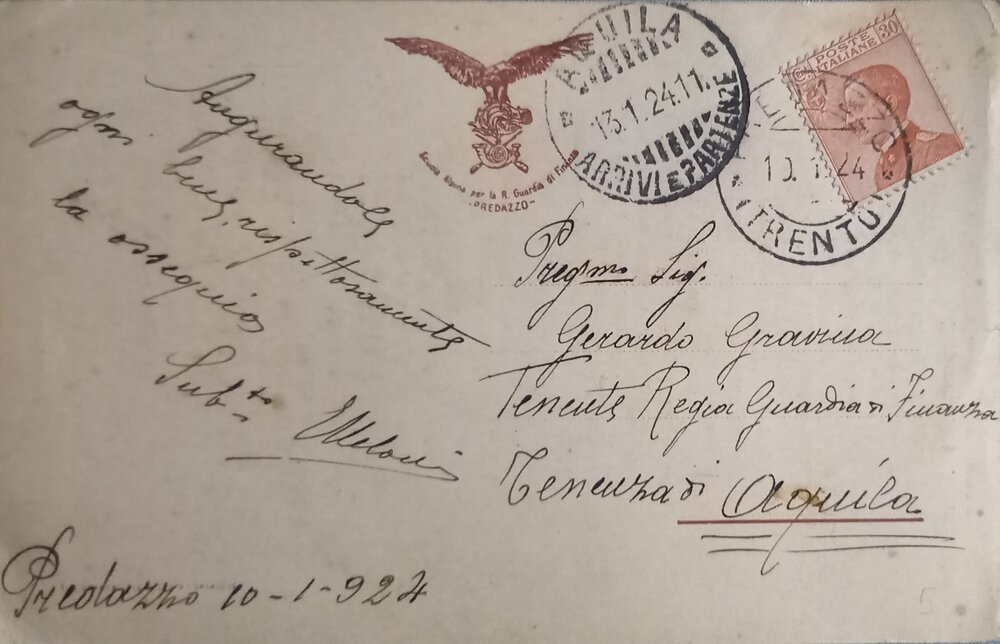 Augurandole
ogni bene, rispettosamente
la ossequio
Sub.to
Predazzo 10-1-924
Scuola Alpina per la R. Guardia di Finanza
-PREDAZZO-
AQUILA
13.1.24.11.
ARRIVI E PARTENZE
10. 1. 24
(TRENTO)
POSTE
ITALIANE
30
Pregmo Sig.
Gerardo Gravina
Tenente Regia Guardia di Finanza
Tenenza di Aquila
5